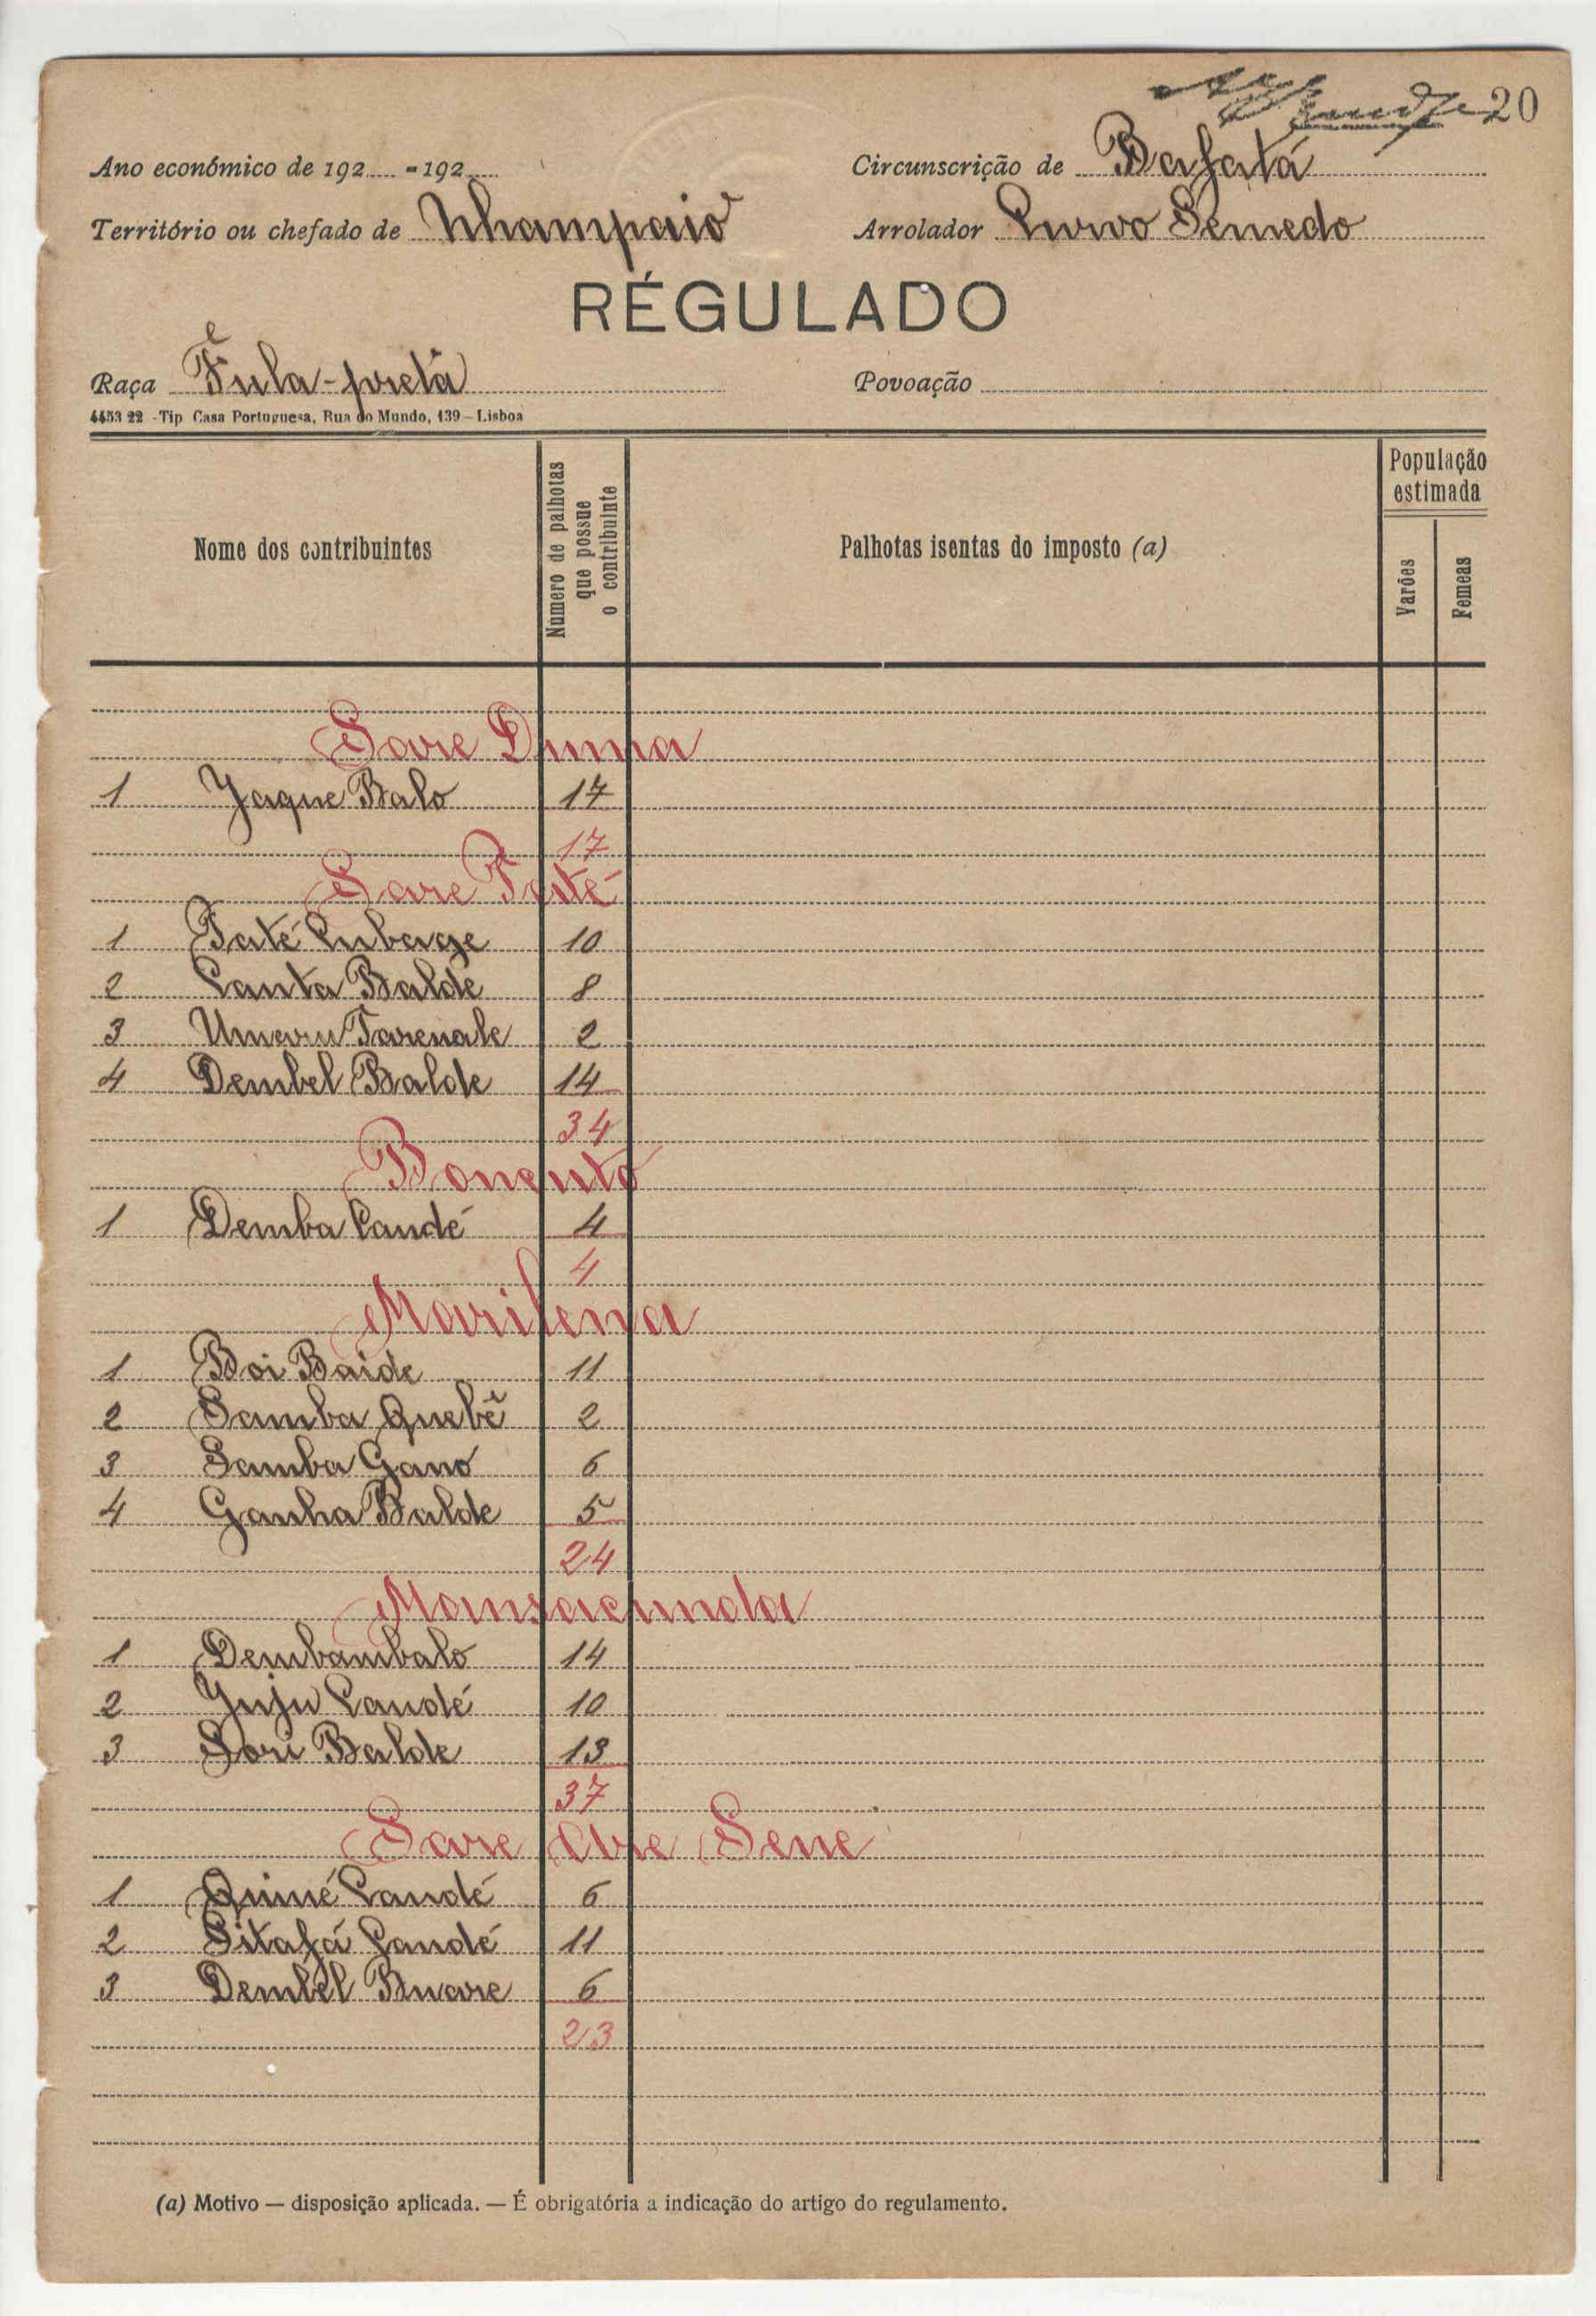 20
Ano económico de 192..... - 192.....
Circunscrição de Bafatá
Território ou chefado de Nhampaio
Arrolador Curvo Semedo
RÉGULADO
Raça Fula-preta
Povoação
4453 22 - Tip Casa Portuguesa, Rua do Mundo, 139 - Lisboa
Nome dos contribuintes
Numero de palhotas que possue o contribuinte
Palhotas isentas do imposto (a)
População estimada
Varões
Femeas
Sare Dumna
1 Jaque Balo 17
17
Sare Paté
1 Paté Cubage 10
2 Canta Balde 8
3 Umaru Tarenale 2
4 Dembel Balde 14
34
Bonento
1 Demba Candé 4
4
Marilena
1 Boi Baide 11
2 Samba Quebê 2
3 Samba Gano 6
4 Ganha Balde 5
24
Mansacunda
1 Dembambalo 14
2 Juju Candé 10
3 Sori Balde 13
37
Sare Sene
1 Quimé Candé 6
2 Sitafá Candé 11
3 Dembel Buare 6
23
(a) Motivo — disposição aplicada. — É obrigatória a indicação do artigo do regulamento.